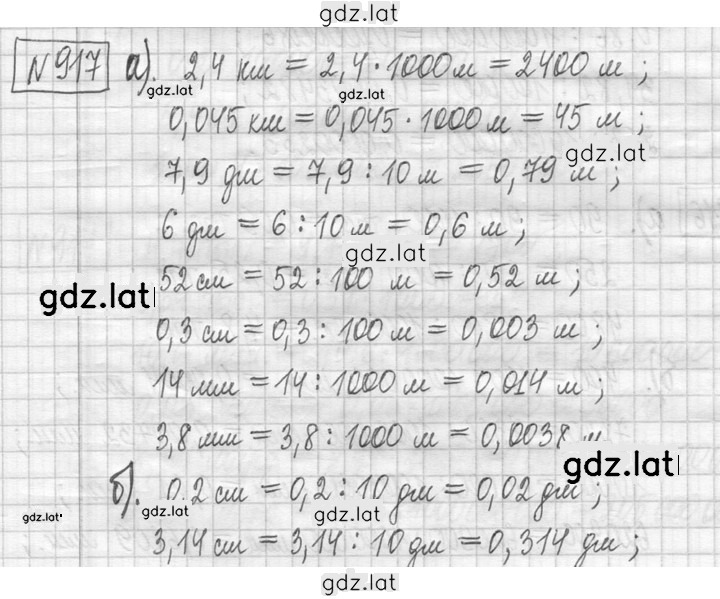 gdz.lat
№917 а). 2,4 км = 2,4·1000 м = 2400 м ;
gdz.lat gdz.lat
0,045 км = 0,045·1000 м = 45 м ;
gdz.lat
7,9 дм = 7,9 : 10 м = 0,79 м ;
6 дм = 6 : 10 м = 0,6 м ;
gdz.lat
52 см = 52 : 100 м = 0,52 м ;
gdz.lat
0,3 см = 0,3 : 100 м = 0,003 м ;
14 мм = 14 : 1000 м = 0,014 м ;
3,8 мм = 3,8 : 1000 м = 0,0038 м
gdz.lat
б). 0,2 см = 0,2 : 10 дм = 0,02 дм ;
gdz.lat gdz.lat gdz.lat
3,14 см = 3,14 : 10 дм = 0,314 дм ;
gdz.lat